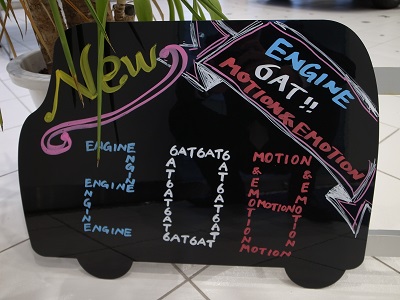 New
ENGINE
6AT!!
MOTION&EMOTION
ENGINE
ENGINE
ENGINE
ENGINE
ENGINE
6AT6AT6
AT6AT6AT
AT6AT6AT
6AT6AT
MOTION
&EMOTION
&EMOTION
MOTION
MOTION